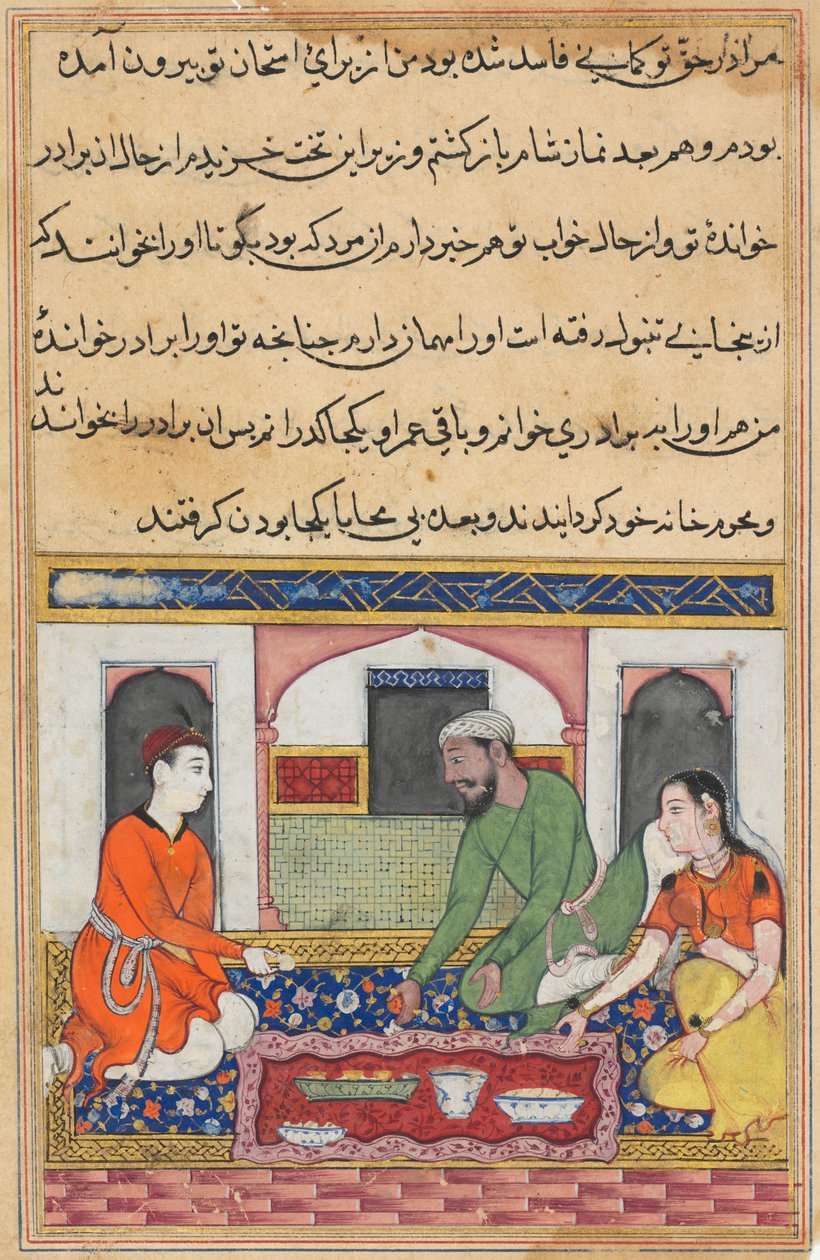 مرا در حقّ تو کمانی فاسد شده بود من از برائ امتحان تو بیرون آمده
بودم و هم بعد نماز شام باز کشتم و زیر این تخت خزیدم از حال ان برادر
خواندۀ تو و از حال خواب تو هم خبر دارم ان مرد که بود بکو تا او را بخوانند که
از رفته است او را مهمان دارم چنانچه تو او را برادر خواندۀ
من هم او را به برادری خوانم و باقی عمر او یکجا کذرانم بس ان برادر را بخواندند
و محرم خانه خود کردانیدند و بعده بی محابا یکجا بودن کرفتند